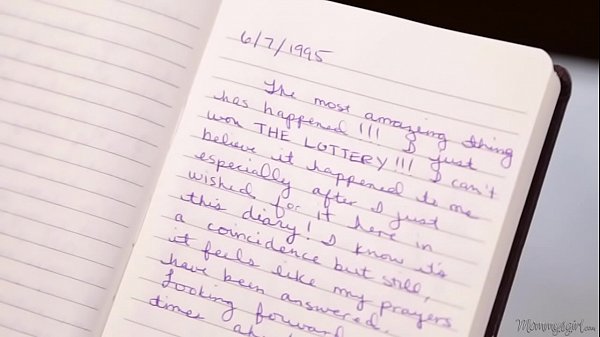 6/7/1995
The most amazing thing
has happened!!! I just
won THE LOTTERY!!! I can't
believe it happened to me
especially after I just
wished for it here in
this diary! I know it's
a coincidence but still,
it feels like my prayers
have been answered.
Looking forward
times
Mommysgirl.com